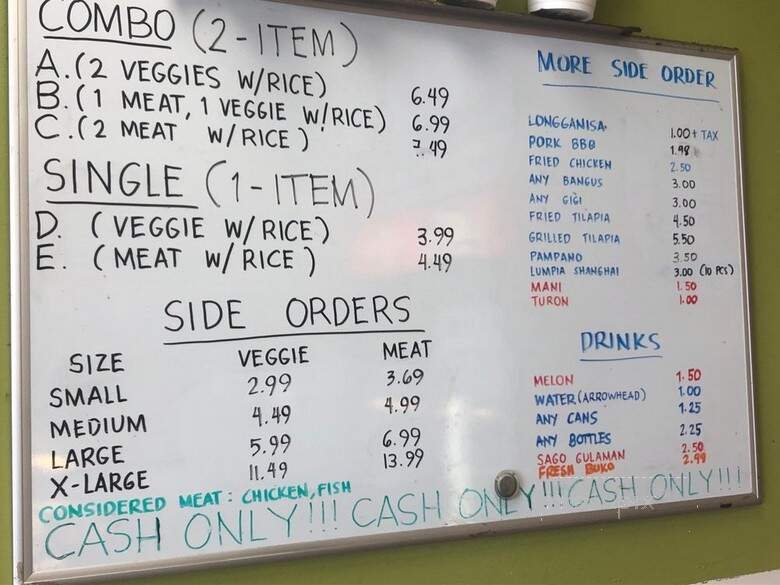 COMBO (2-ITEM)
A. (2 VEGGIES W/RICE) 6.49
B. (1 MEAT, 1 VEGGIE W/RICE) 6.99
C. (2 MEAT W/RICE) 7.49
SINGLE (1-ITEM)
D. (VEGGIE W/RICE) 3.99
E. (MEAT W/RICE) 4.49
SIDE ORDERS
SIZE VEGGIE MEAT
SMALL 2.99 3.69
MEDIUM 4.49 4.99
LARGE 5.99 6.99
X-LARGE 11.49 13.99
MORE SIDE ORDER
LONGGANISA 1.00 + TAX
PORK BBQ 1.98
FRIED CHICKEN 2.50
ANY BANGUS 3.00
ANY GIGI 3.00
FRIED TILAPIA 4.50
GRILLED TILAPIA 5.50
PAMPANO 3.50
LUMPIA SHANGHAI 3.00 (10 PCS)
MANI 1.50
TURON 1.00
DRINKS
MELON 1.50
WATER (ARROWHEAD) 1.00
ANY CANS 1.25
ANY BOTTLES 2.25
SAGO GULAMAN 2.50
FRESH BUKO 2.99
CONSIDERED MEAT: CHICKEN, FISH
CASH ONLY!!! CASH ONLY!!! CASH ONLY!!!